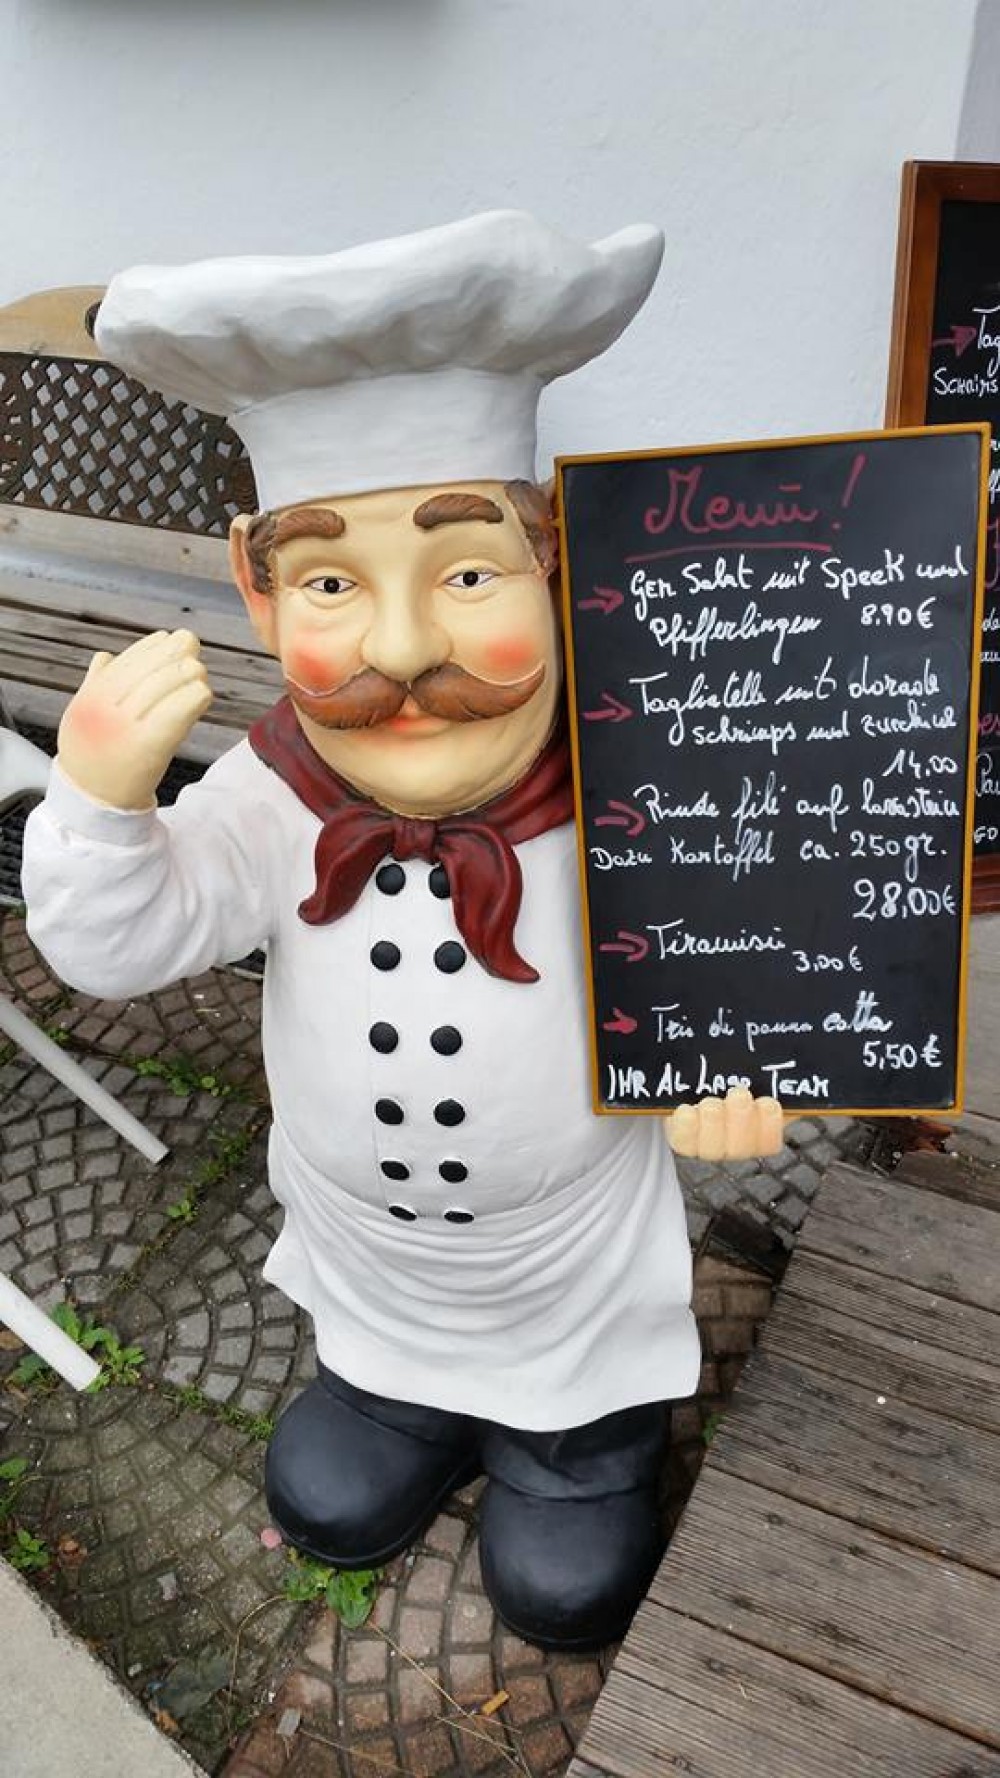 Menü!
Gem Salat mit Speck und
Pfifferlingen 8.90€
Tagliatelle mit dorade
schrimps und zucchini
14,00
Rinde filé auf lavastein
Dazu Kartoffel ca. 250gr.
28,00€
Tiramisu
3,00€
Tris di panna cotta
5,50€
IHR AL LAGO TEAM
Tag
Schrims